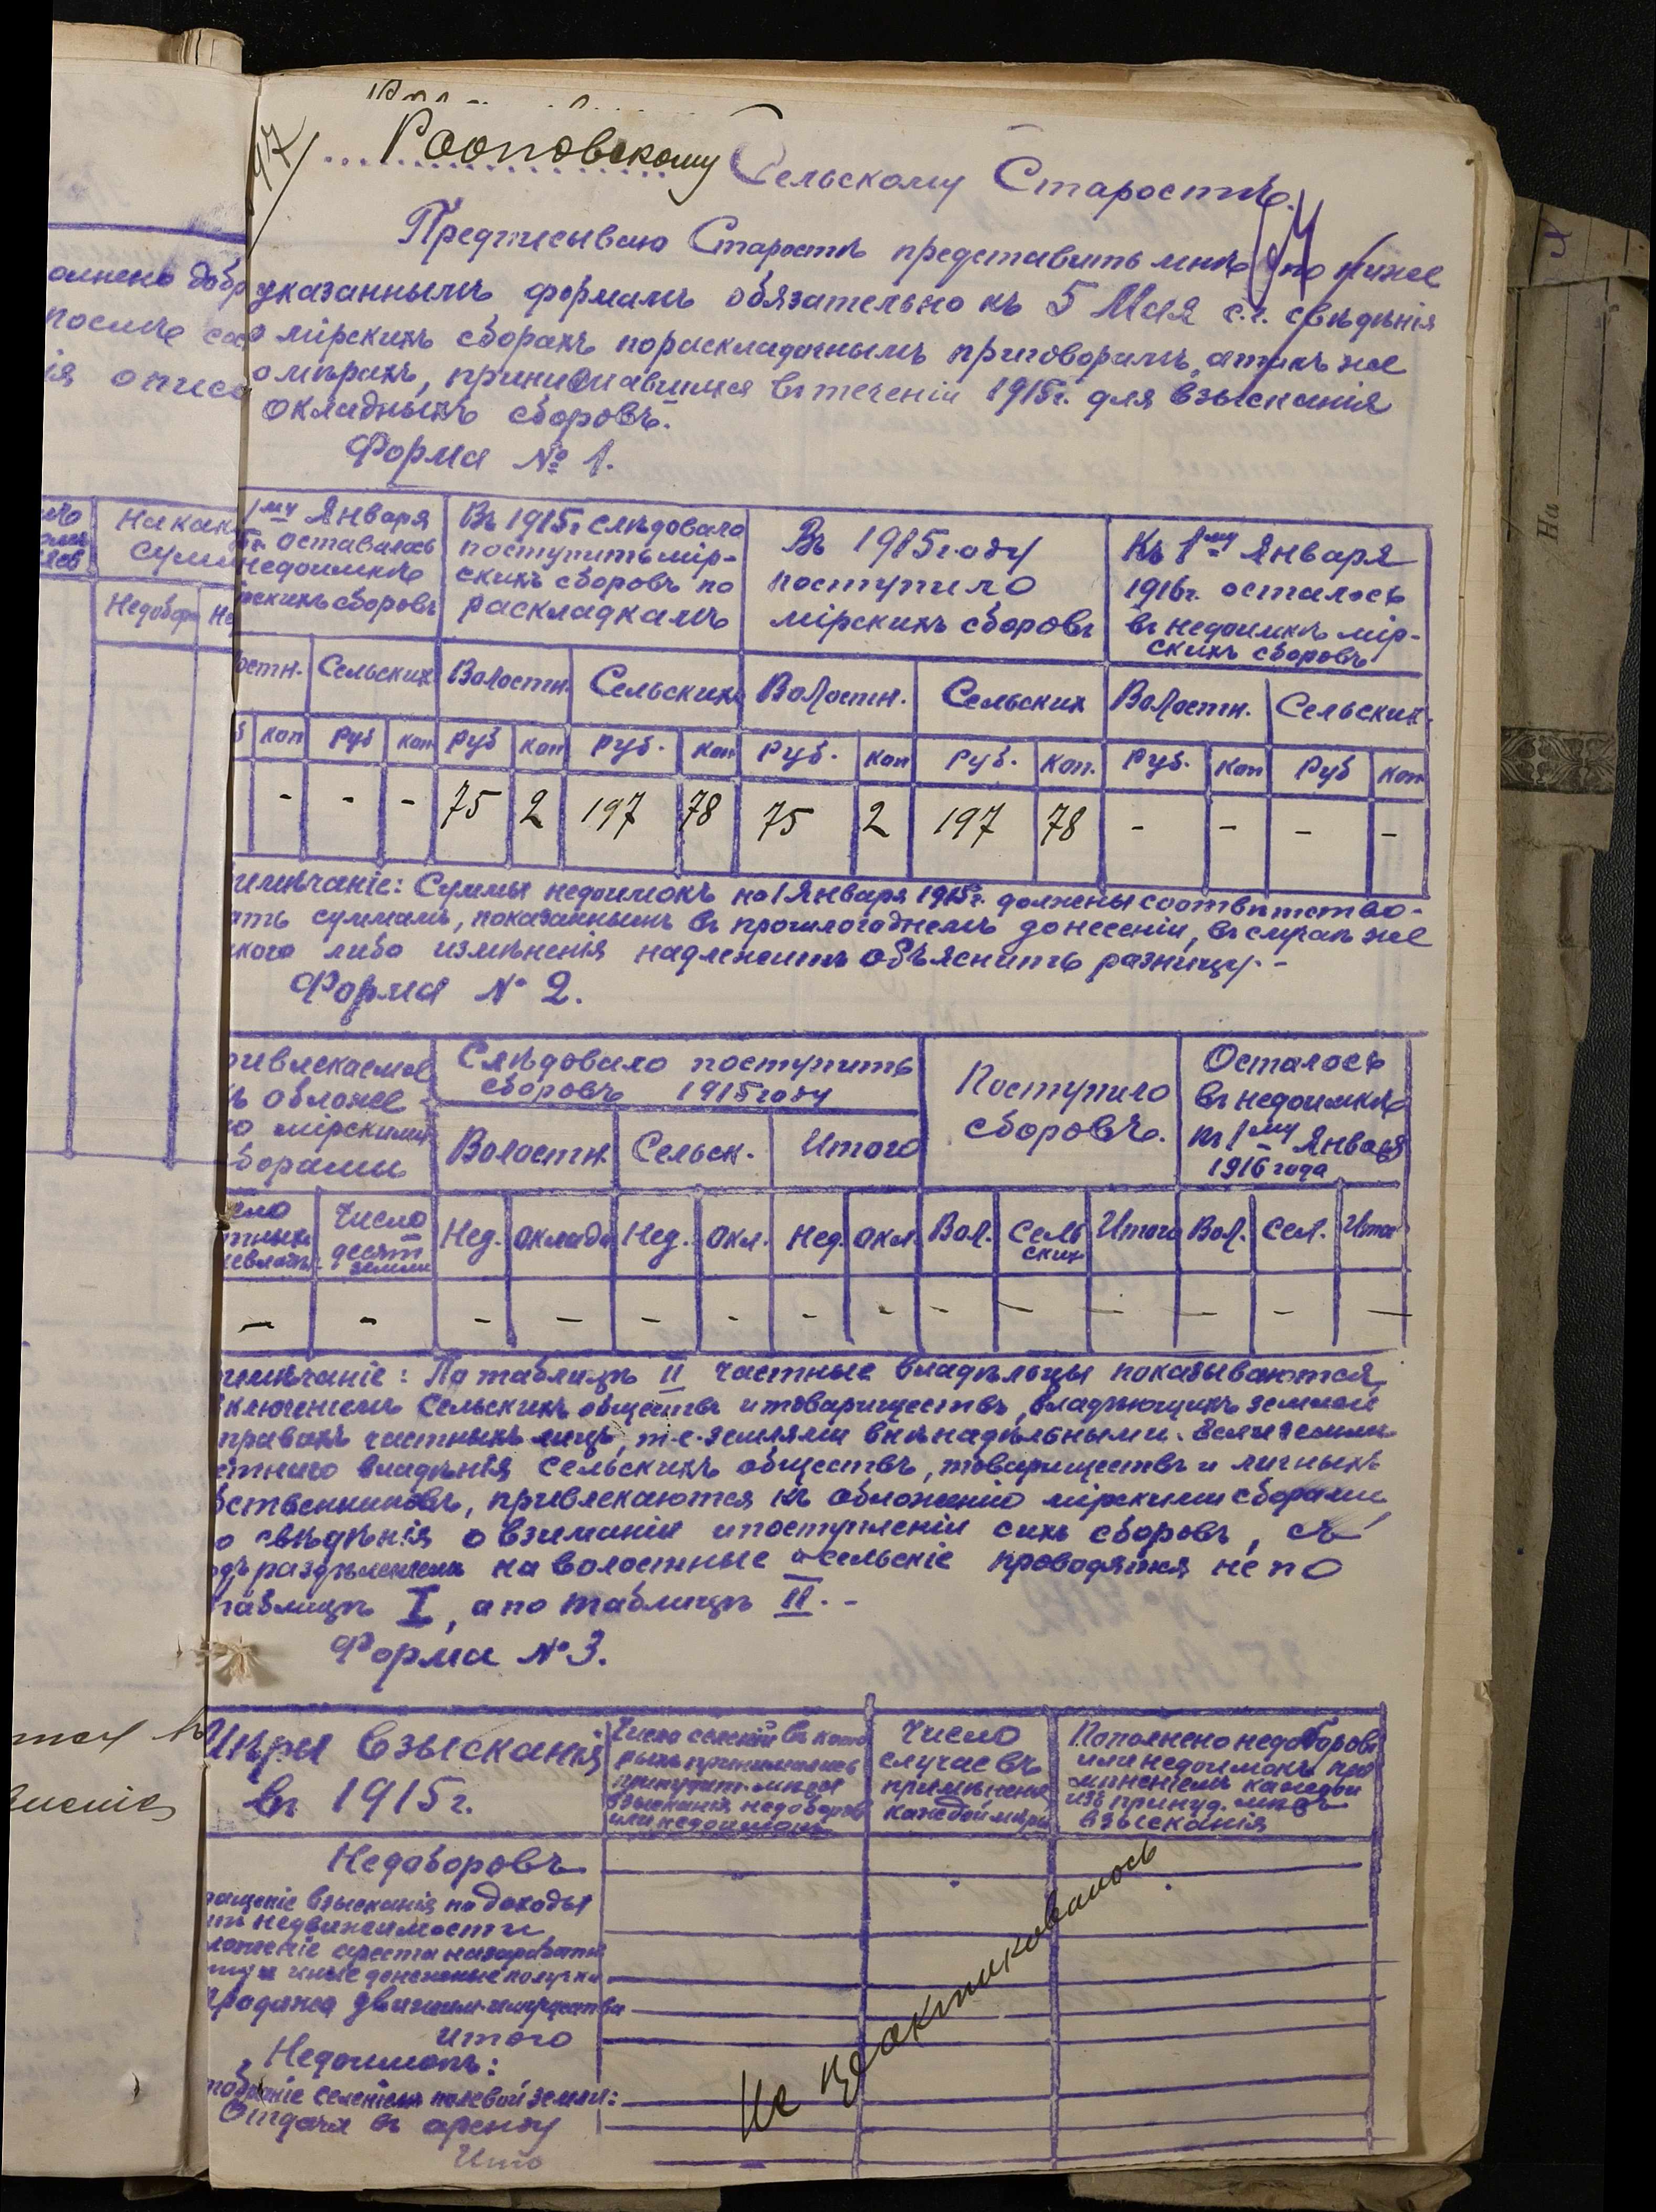 47
Сельскому Старостѣ.
Предписываю Старостѣ представить мнѣ по ниже
указаннымъ формамъ обязательно къ 5 Мая с.г. свѣдѣнія
о мірскихъ сборахъ по раскладочнымъ приговорамъ, а такъ же
о мѣрахъ, принимавшихся въ теченіи 1915г. для взысканія
окладныхъ сборовъ.
Форма № 1.
1му Января
оставалось
недоимкѣ
рскихъ сборовъ
Въ 1915г слѣдовало
поступить мір-
скихъ сборовъ по
раскладкамъ
Въ 1915году
поступило
мірскихъ сборовъ
Къ 1му Января
1916г. осталось
въ недоимкѣ мір-
скихъ сборовъ
остн. Сельскихъ Волостн. Сельскихъ Волостн. Сельских Волостн. Сельских.
коп руб коп руб коп руб. коп руб. коп руб. коп. руб. коп руб коп
- - - 75 2 197 78 75 2 197 78 - - - -
имѣчаніе: Суммы недоимокъ на 1 Января 1915г. должны соотвѣтство-
ать суммамъ, показаннымъ въ прошлогоднемъ донесеніи, въ случаѣ же
кого либо измѣненія надлежитъ объяснить разницу. -
Форма № 2.
ривлекаемое
ъ обложе-
ю мірскими
борами
Слѣдовало поступить
сборовъ 1915 году
Волостн. Сельск. Итого
Поступило
сборовъ.
Осталось
въ недоимкѣ
къ 1му Января
1916 года
Число
десят
земли
Нед. оклада Нед. окл. Нед. окл. Вол. Сель
ских Итого Вол. Сел. Итог
- - - - - - - - - - - - - -
имѣчаніе: По таблицѣ II частные владѣльцы показываются,
ключеніемъ сельскихъ обществъ и товариществъ, владѣющихъ землей
правахъ частныхъ лицъ, т-е. землями внѣнадѣльными. Если земли
стнаго владѣнія сельскихъ обществъ, товариществъ и личныхъ
бственниковъ, привлекаются къ обложенію мірскими сборами
о свѣдѣнія о взиманіи и поступленіи сихъ сборовъ, съ
одъ раздѣленіемъ на волостные и сельскіе проводятся не по
таблицѣ I, а по таблицѣ II. -
Форма № 3.
Мѣры взысканія
въ 1915г.
Число селеній въ кото
рыхъ принимались
принудит. мѣры
взысканія недоборовъ
или недоимокъ
Число
случаевъ
примѣненія
каждой мѣры
Пополнено недоборовъ
или недоимокъ при
мѣненіемъ каждой
изъ принуд. мѣръ
взысканія
Недоборовъ
ращеніе взысканія на доходы
недвижимости
ложеніе ареста на заработн
и иные денежные получки
продажа движим. имущества
Итого
Недоимокъ:
Отдача въ аренду
Ито
Не практиковалось